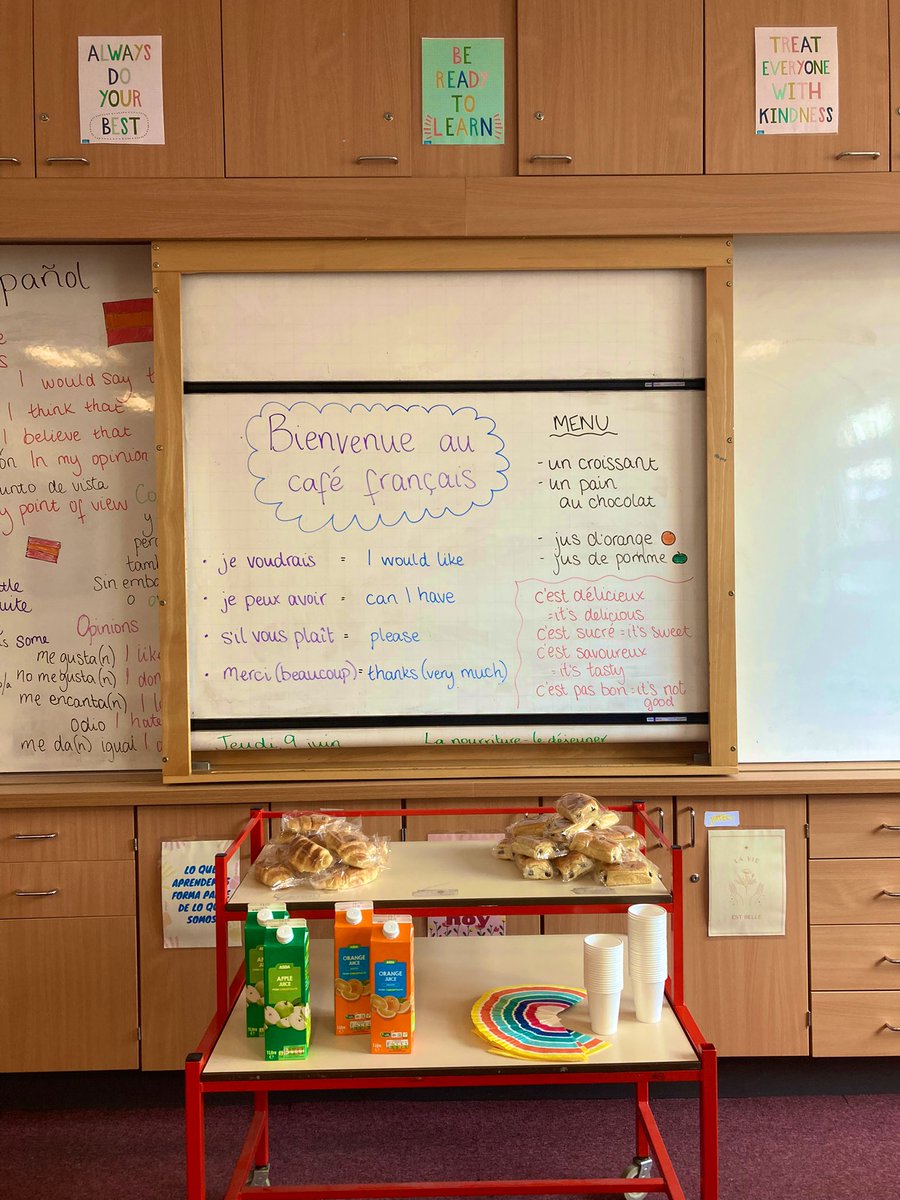 ALWAYS
DO
YOUR
BEST
BE
READY
TO
LEARN
TREAT
EVERYONE
WITH
KINDNESS
pañol
I would say
I think that
I believe that
In my opinion
punto de vista
y point of view
y
Sin emba
o
Opinions
some
me gusta(n) I like
no me gusta(n) I don
me encanta(n) I
Odio I hate
me da(n) igual I
Bienvenue au
café français
• je voudrais = I would like
• je peux avoir = can I have
• s'il vous plaît = please
• merci (beaucoup) = thanks (very much)
MENU
- un croissant
- un pain
au chocolat
- jus d'orange
- jus de pomme
c'est délicieux
= it's delicious
c'est sucré = it's sweet
c'est savoureux
= it's tasty
c'est pas bon = it's not
good
Jeudi 9 juin
La nourriture - le déjeuner
LO QUE
APRENDEM
FORMA PAR
DE LO QU
SOMOS
hoy
LA VIE
EST BELLE
ASDA
APPLE
JUICE
ASDA
ORANGE
JUICE
ASDA
ORANGE
JUICE